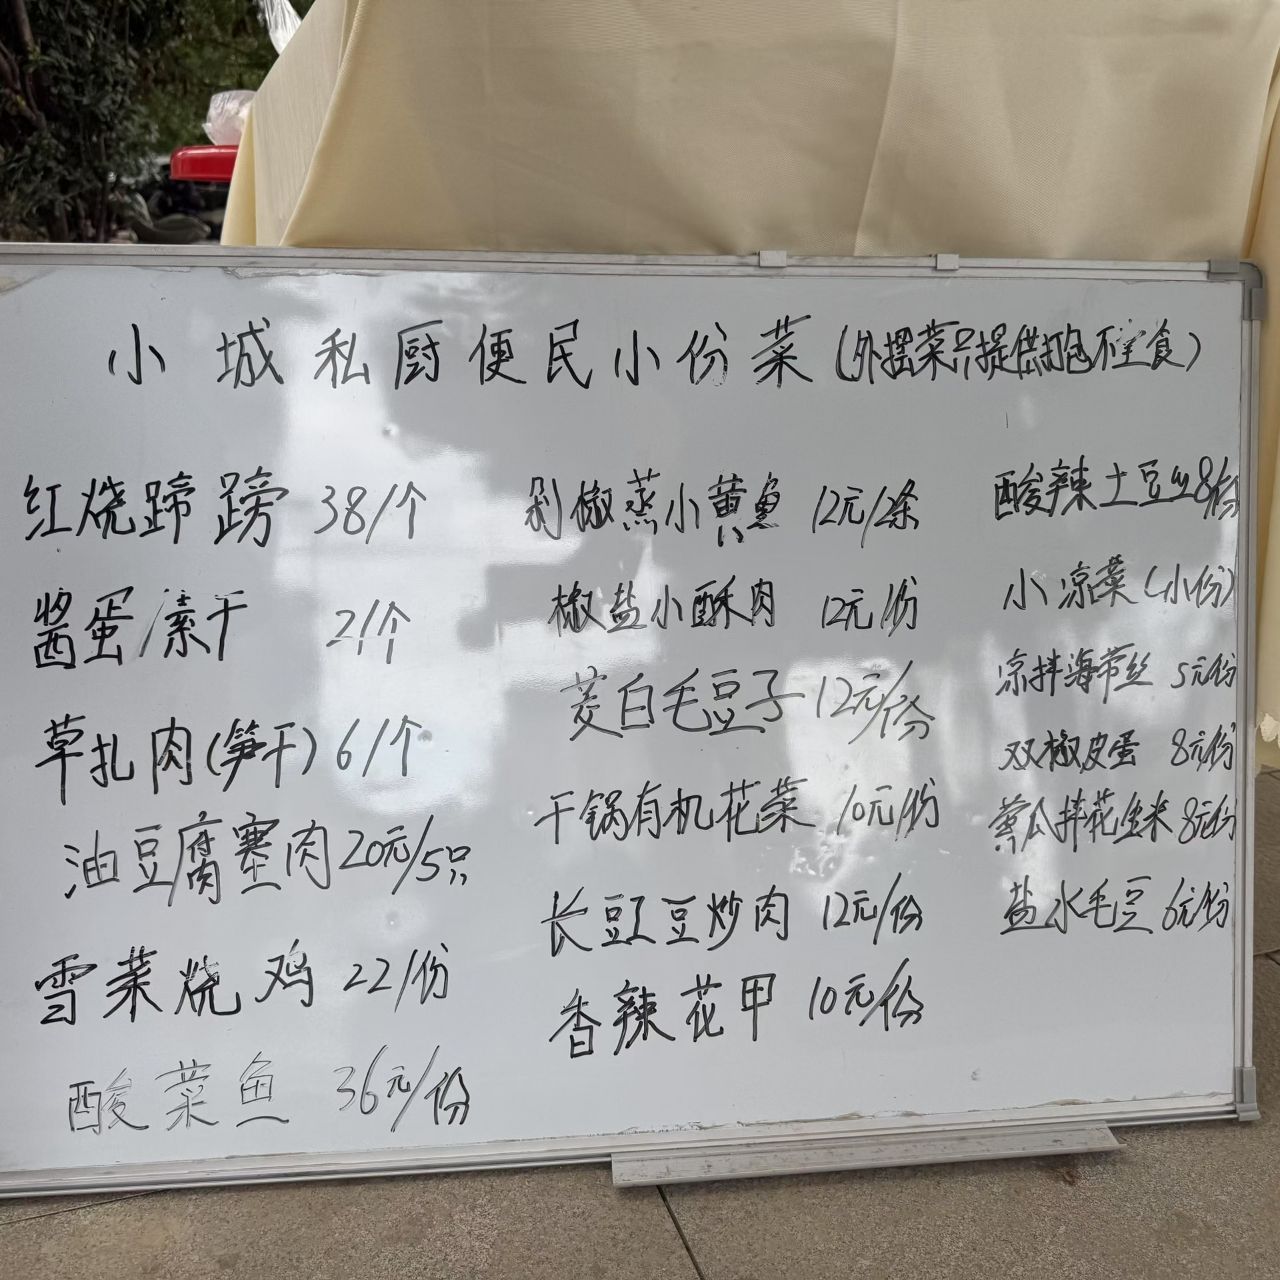 小城私厨便民小份菜(外摆菜只提供打包不堂食)
红烧蹄膀 38/个
酱蛋/素干 2/个
草扎肉(笋干) 6/个
油豆腐塞肉 20元/5只
雪菜烧鸡 22/份
酸菜鱼 36元/份
剁椒蒸小黄鱼 12元/2条
椒盐小酥肉 12元/份
茭白毛豆子 12元/份
干锅有机花菜 10元/份
长豇豆炒肉 12元/份
香辣花甲 10元/份
酸辣土豆丝 8/份
小凉菜(小份)
凉拌海带丝 5元/份
双椒皮蛋 8元/份
黄瓜拌花生米 8元/份
盐水毛豆 6元/份